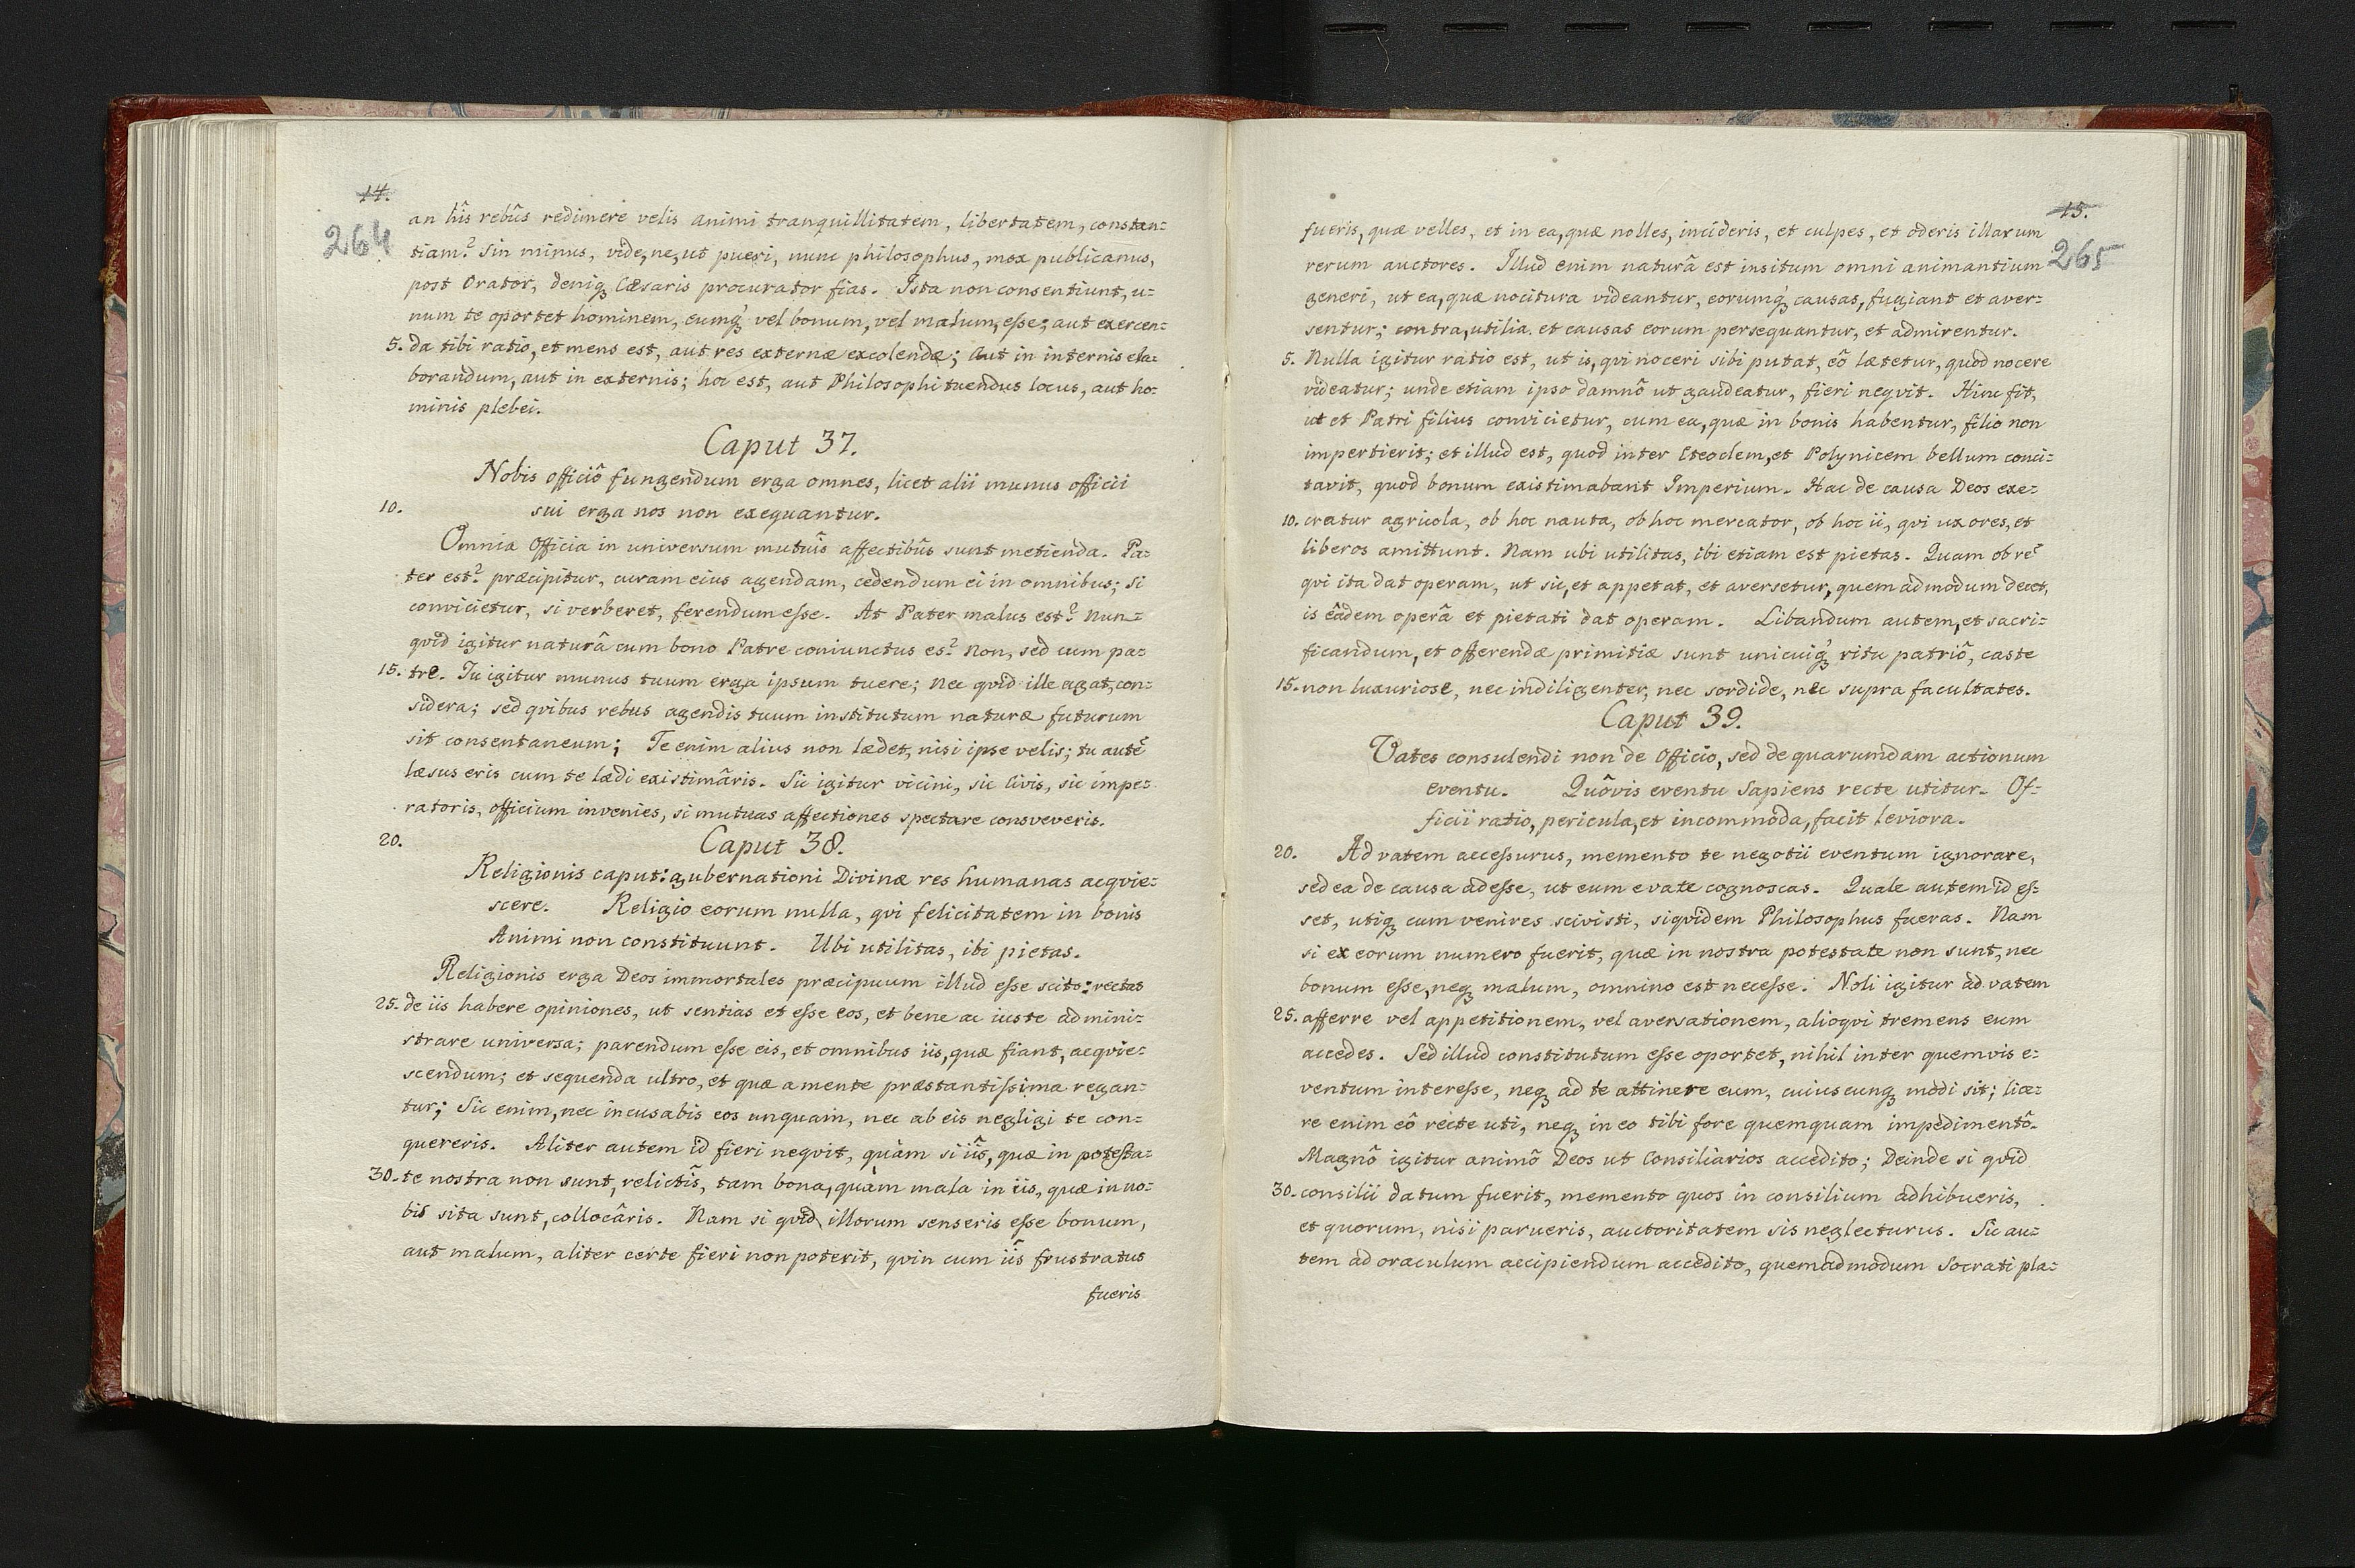 14.
264
an hîs rebûs redimere velis animi tranquillitatem, libertatem, constan=
tiam? Sin minus, vide, ne, ut pueri, nunc philosophus, mox publicanus,
post Orator, deniqꝫ Cæsaris procurator fias. Ista non consentiunt, u=
num te oportet hominem, eumqꝫ vel bonum, vel malum, esse; aut exercen=
5. da tibi ratio, et mens est, aut res externæ excolendæ; aut in internis ela=
borandum, aut in externis; hoc est, aut Philosophi tuendus locus, aut ho=
minis plebei.
Caput 37.
Nobis officiô fungendum erga omnes, licet alii munus officii
10. sui erga nos non exequantur.
Omnia Officia in universum mutuîs affectibûs sunt metienda. Pa=
ter est? præcipitur, curam eius agendam, cedendum ei in omnibus; si
convicietur, si verberet, ferendum esse. At Pater malus est? Nun=
qvid igitur naturâ cum bono Patre coniunctus es? Non, sed cum pa=
15. tre. Tu igitur munus tuum erga ipsum tuere; Nec qvid ille agat, con=
sidera; sed qvibus rebus agendis tuum institutum naturæ futurum
sit consentaneum; Te enim alius non lædet, nisi ipse velis; tu autē
læsus eris cum te lædi existimâris. Sic igitur vicini, sic Civis, sic impe=
ratoris, officium invenies, si mutuas affectiones spectare consveveris.
20. Caput 38.
Religionis caput: gubernationi Divinæ res humanas acqvie=
scere. Religio eorum nulla, qvi felicitatem in bonis
Animi non constituunt. Ubi utilitas, ibi pietas.
Religionis erga Deos immortales præcipuum illud esse scito: rectas
25. de iis habere opiniones, ut sentias et esse eos, et bene ac iuste admini=
strare universa; parendum esse eis, et omnibus iis, quæ fiant, acqvie=
scendum; et sequenda ultro, et quæ a mente præstantissima regan=
tur; Sic enim, nec incusabis eos unquam, nec ab eis negligi te con=
quereris. Aliter autem id fieri neqvit, quàm si iîs, quæ in potesta=
30. te nostra non sunt, relictîs, tam bona, quàm mala in iis, quæ in no=
bis sita sunt, collocâris. Nam si qvid illorum senseris esse bonum,
aut malum, aliter certe fieri non poterit, qvin cum iîs frustratus
fueris
15.
265
fueris, quæ velles, et in ea, quæ nolles, incideris, et culpes, et oderis illarum
rerum auctores. Illud enim naturâ est insitum omni animantium
generi, ut ea, quæ nocitura videantur, eorumqꝫ causas, fugiant et aver=
sentur; contra, utilia et causas eorum persequantur, et admirentur.
5. Nulla igitur ratio est, ut is, qvi noceri sibi putat, eô lætetur, quod nocere
videatur; unde etiam ipso damnô ut gaudeatur, fieri neqvit. Hinc fit,
ut et Patri filius convicietur, cum ea, quæ in bonis habentur, filio non
impertierit; et illud est, quod inter Eteoclem, et Polynicem bellum conci=
tavit, quod bonum existimabant Imperium. Hac de causa Deos exe=
10. cratur agricola, ob hoc nauta, ob hoc mercator, ob hoc ii, qvi uxores, et
liberos amittunt. Nam ubi utilitas, ibi etiam est pietas. Quam ob rē
qvi ita dat operam, ut sic, et appetat, et aversetur, quemadmodum decet,
is eâdem operâ et pietati dat operam. Libandum autem, et sacri=
ficandum, et offerendæ primitiæ sunt unicuiqꝫ ritu patriô, caste
15. non luxuriose, nec indiligenter, nec sordide, nec supra facultates.
Caput 39.
Vates consulendi non de Officio, sed de quarumdam actionum
eventu. Quôvis eventu Sapiens recte utitur. Of=
ficii ratio, pericula, et incommoda, facit leviora.
20. Ad vatem accessurus, memento te negotii eventum ignorare,
sed ea de causa adesse, ut eum e vate cognoscas. Quale autem id es=
set, utiqꝫ cum venires scivisti, siqvidem Philosophus fueras. Nam
si ex eorum numero fuerit, quæ in nostra potestate non sunt, nec
bonum esse, neqꝫ malum, omnino est necesse. Noli igitur ad vatem
25. afferre vel appetitionem, vel aversationem, alioqvi tremens eum
accedes. Sed illud constitutum esse oportet, nihil inter quemvis e=
ventum interesse, neqꝫ ad te attinere eum, cuiuscunqꝫ modi sit; lice=
re enim eô recte uti, neqꝫ in eo tibi fore quemquam impedimentô.
Magnô igitur animô Deos ut Consiliarios accedito; Deinde si qvid
30. consilii datum fuerit, memento quos in consilium adhibueris,
et quorum, nisi parueris, auctoritatem sis neglecturus. Sic au=
tem ad oraculum accipiendum accedito, quemadmodum Socrati pla=